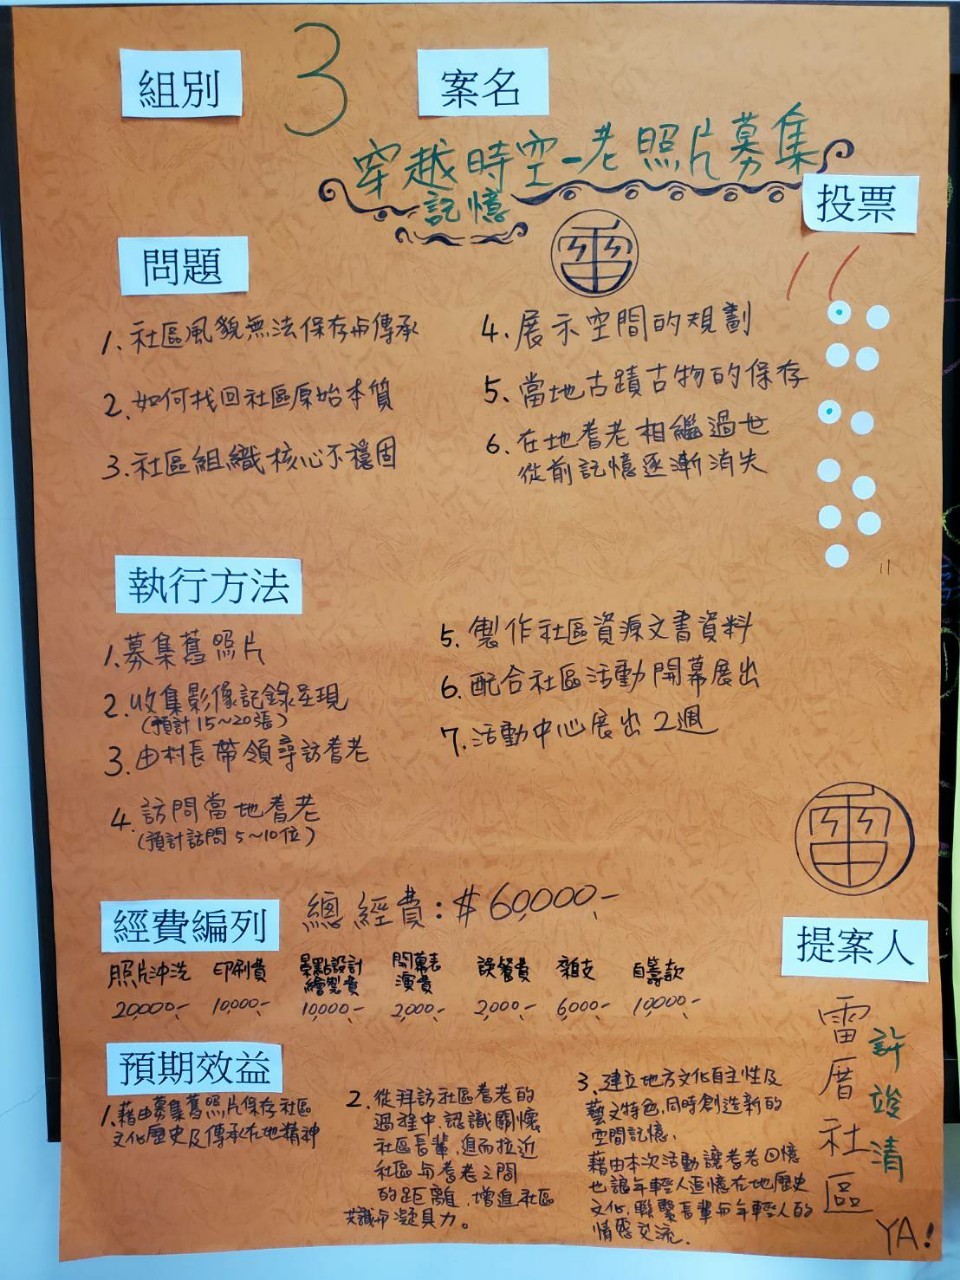 組別
3
案名
穿越時空-老照片募集
記憶
投票
雷
11
問題
1.社區風貌無法保存与傳承
2.如何找回社區原始本質
3.社區組織核心不穩固
4.展示空間的規劃
5.當地古蹟古物的保存
6.在地耆老相繼過世
從前記憶逐漸消失
11
執行方法
1.募集舊照片
2.收集影像記錄呈現
(預計15~20張)
3.由村長帶領尋訪耆老
4.訪問當地耆老
(預計訪問5~10位)
5.製作社區資源文書資料
6.配合社區活動開幕展出
7.活動中心展出2週
雷
經費編列
總經費:$60,000.-
照片沖洗 印刷費 景點設計繪製費 開幕表演費 誤餐費 雜支 自籌款
20000.- 10,000.- 10,000.- 2,000.- 2,000.- 6,000.- 10,000.-
提案人
雷厝社區
許竣清
YA!
預期效益
1.藉由募集舊照片保存社區
文化歷史及傳承在地精神
2.從拜訪社區耆老的
過程中,認識關懷
社區長輩,進而拉近
社區与耆老之間
的距離,增進社區
共識与凝具力。
3.建立地方文化自主性及
藝文特色,同時創造新的
空間記憶,
藉由本次活動讓耆老回憶
也讓年輕人追憶在地歷史
文化,聯繫長輩与年輕人的
情感交流.